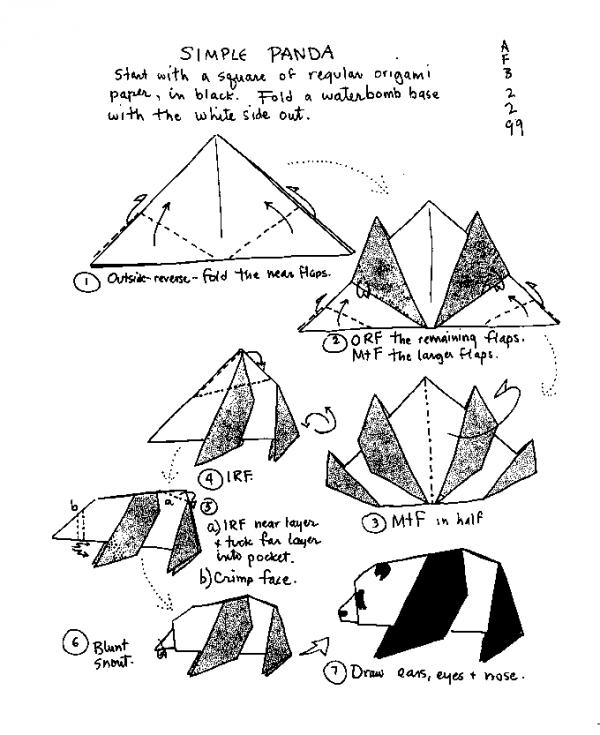 SIMPLE PANDA
Start with a square of regular origami
paper, in black. Fold a waterbomb base
with the white side out.
A
F
B
2
2
99
1 Outside-reverse-fold the near flaps.
2 ORF the remaining flaps.
MtF the larger flaps.
3 MtF in half
4 IRF.
5
a) IRF near layer
+ tuck far layer
into pocket.
b) Crimp face.
a
b
6 Blunt
snout.
7 Draw ears, eyes + nose.